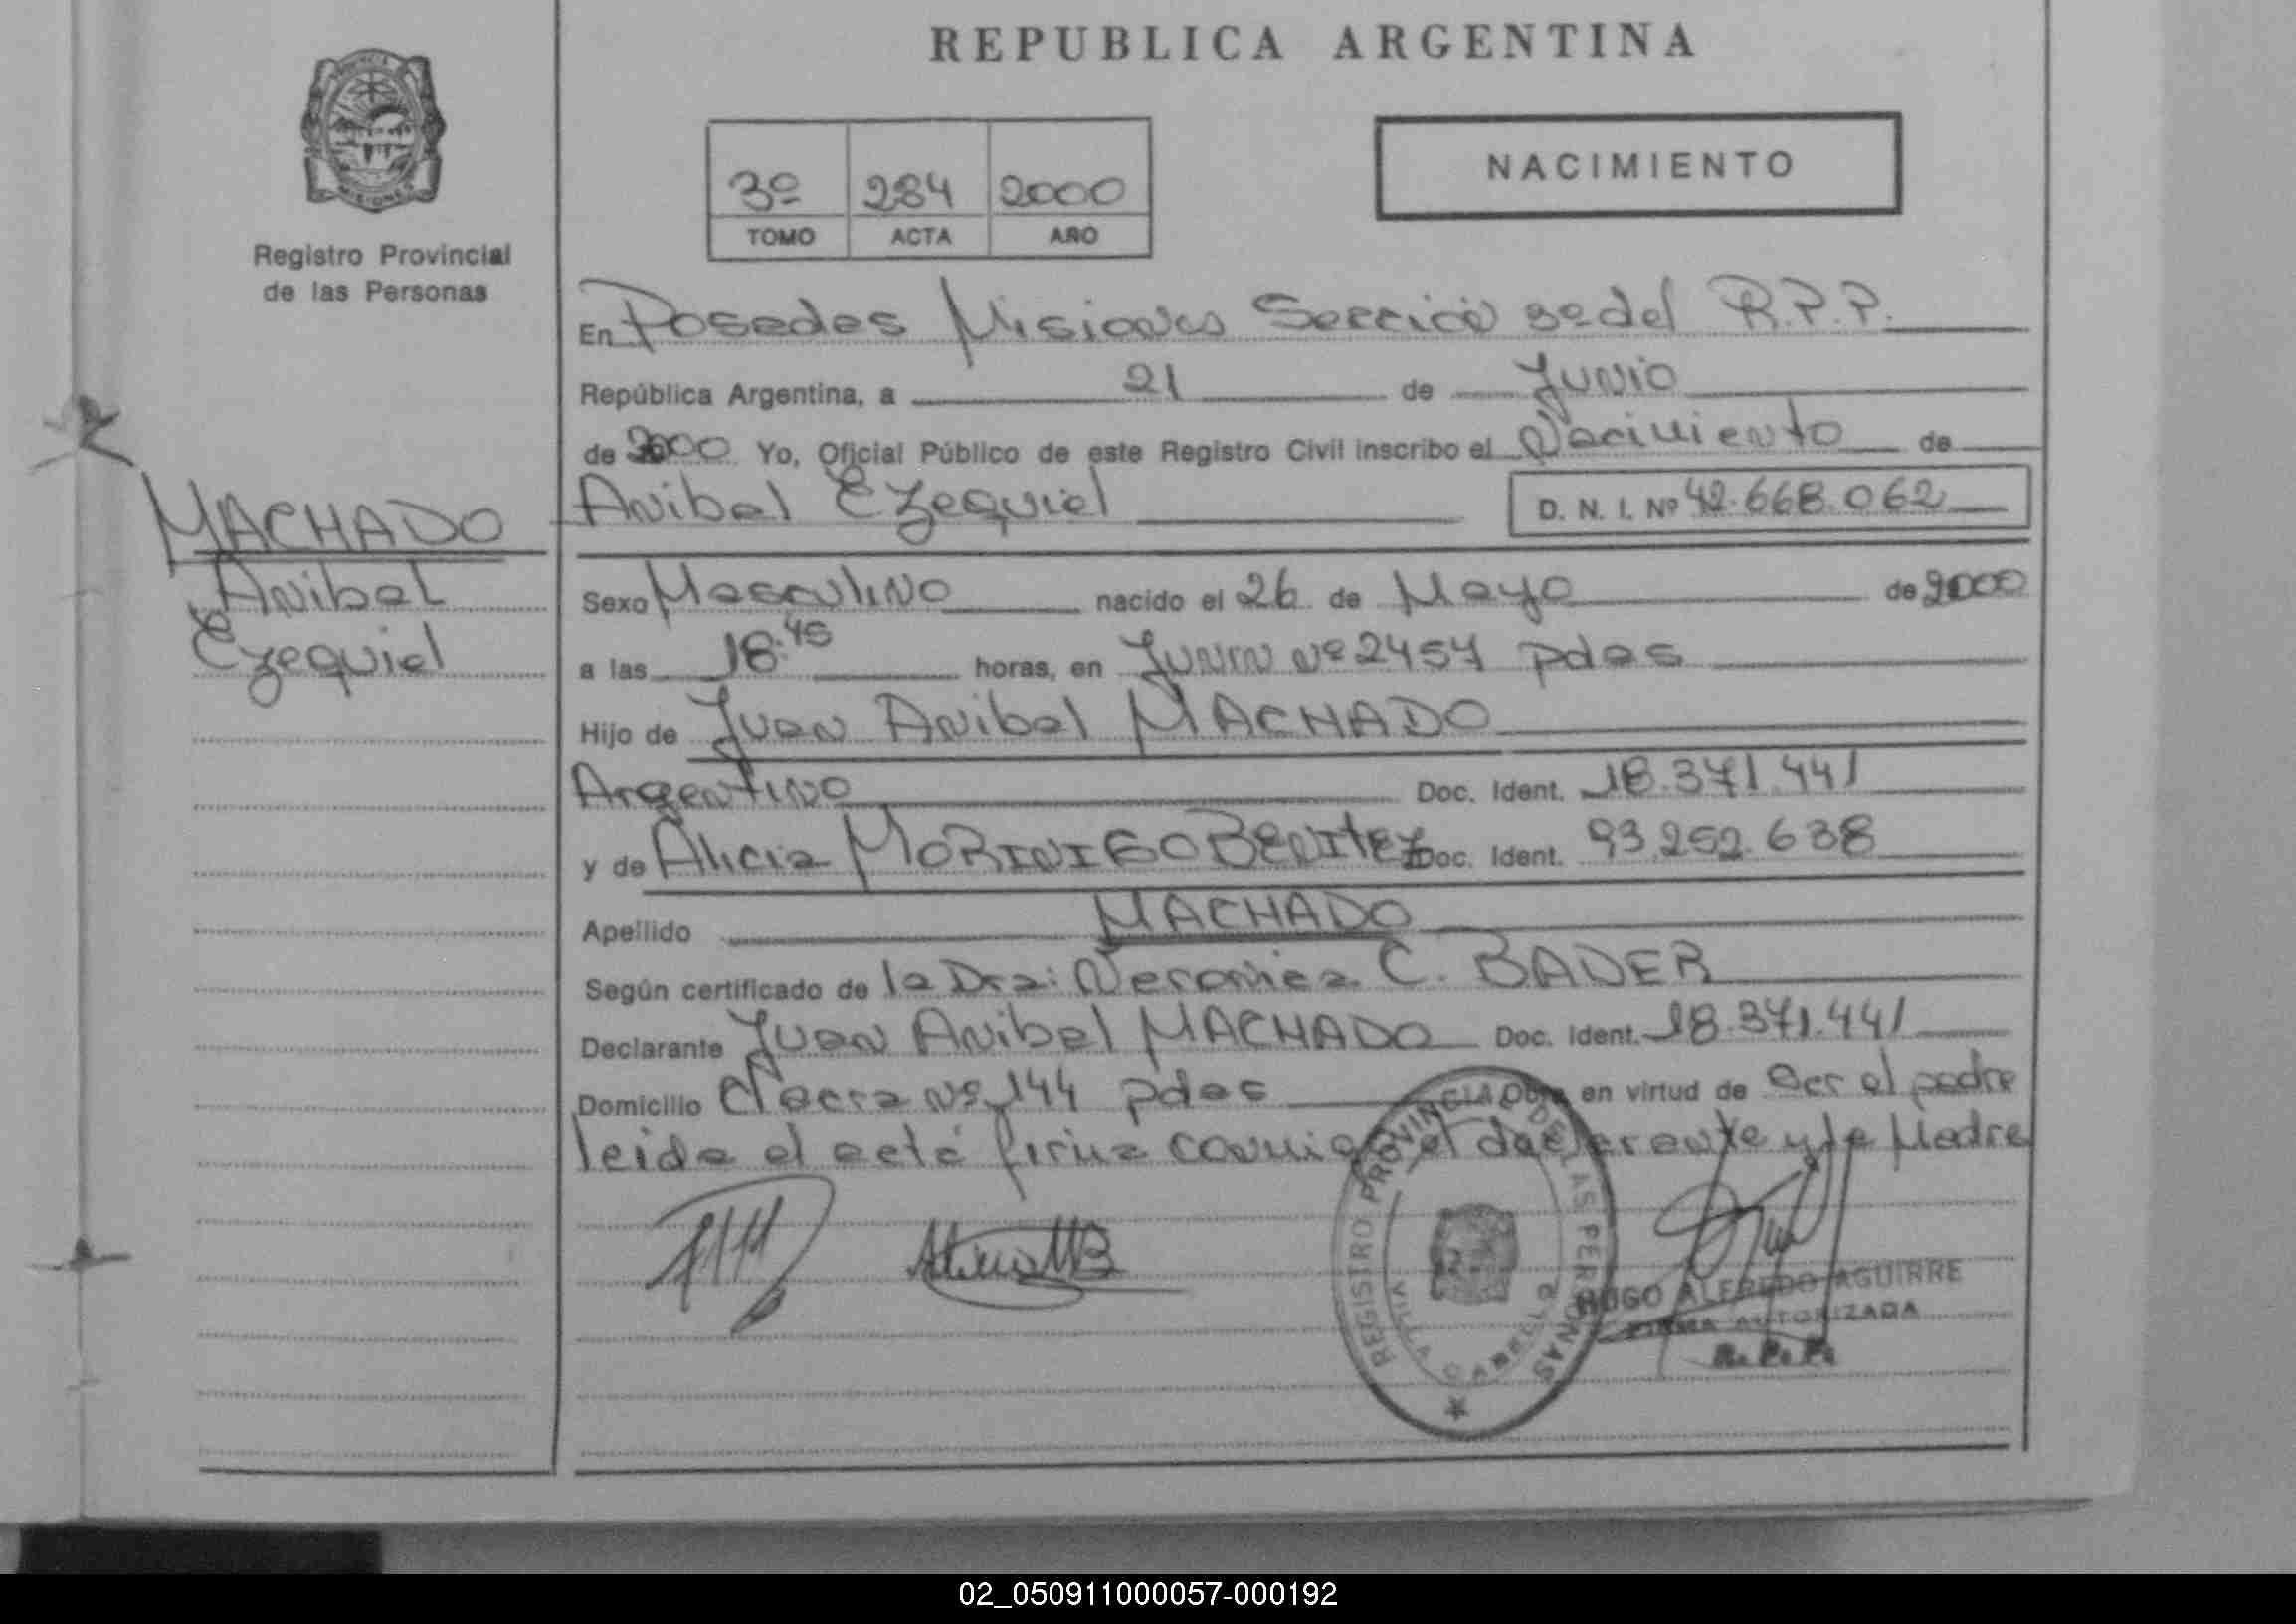 REPUBLICA ARGENTINA
PROVINCIA
MISIONES
Registro Provincial
de las Personas
3º 284 2000
TOMO ACTA AÑO
NACIMIENTO
En Posadas Misiones Sección 3º del R.P.P.
República Argentina, a 21 de Junio
de 2000 Yo, Oficial Público de este Registro Civil inscribo el Nacimiento de
Anibal Ezequiel D. N. I. Nº 42.668.062
MACHADO
Anibal
Ezequiel
Sexo Masculino nacido el 26 de Mayo de 2000
a las 18:45 horas, en Junin Nº 2457 pdas
Hijo de Juan Anibal MACHADO
Argentino Doc. Ident. 18.371.441
y de Alicia MORINIGO BENITEZ Doc. Ident. 93.252.638
Apellido MACHADO
Según certificado de la Dra: Veronica C. BADER
Declarante Juan Anibal MACHADO Doc. Ident. 18.371.441
Domicilio Nº 144 pdas Obra en virtud de ser el padre
leida el acta firma conmigo el declarante y la Madre
REGISTRO PROVINCIAL DE LAS PERSONAS
VILLA CABELLO
HUGO ALFREDO AGUIRRE
FIRMA AUTORIZADA
R. P. P.
02_050911000057-000192